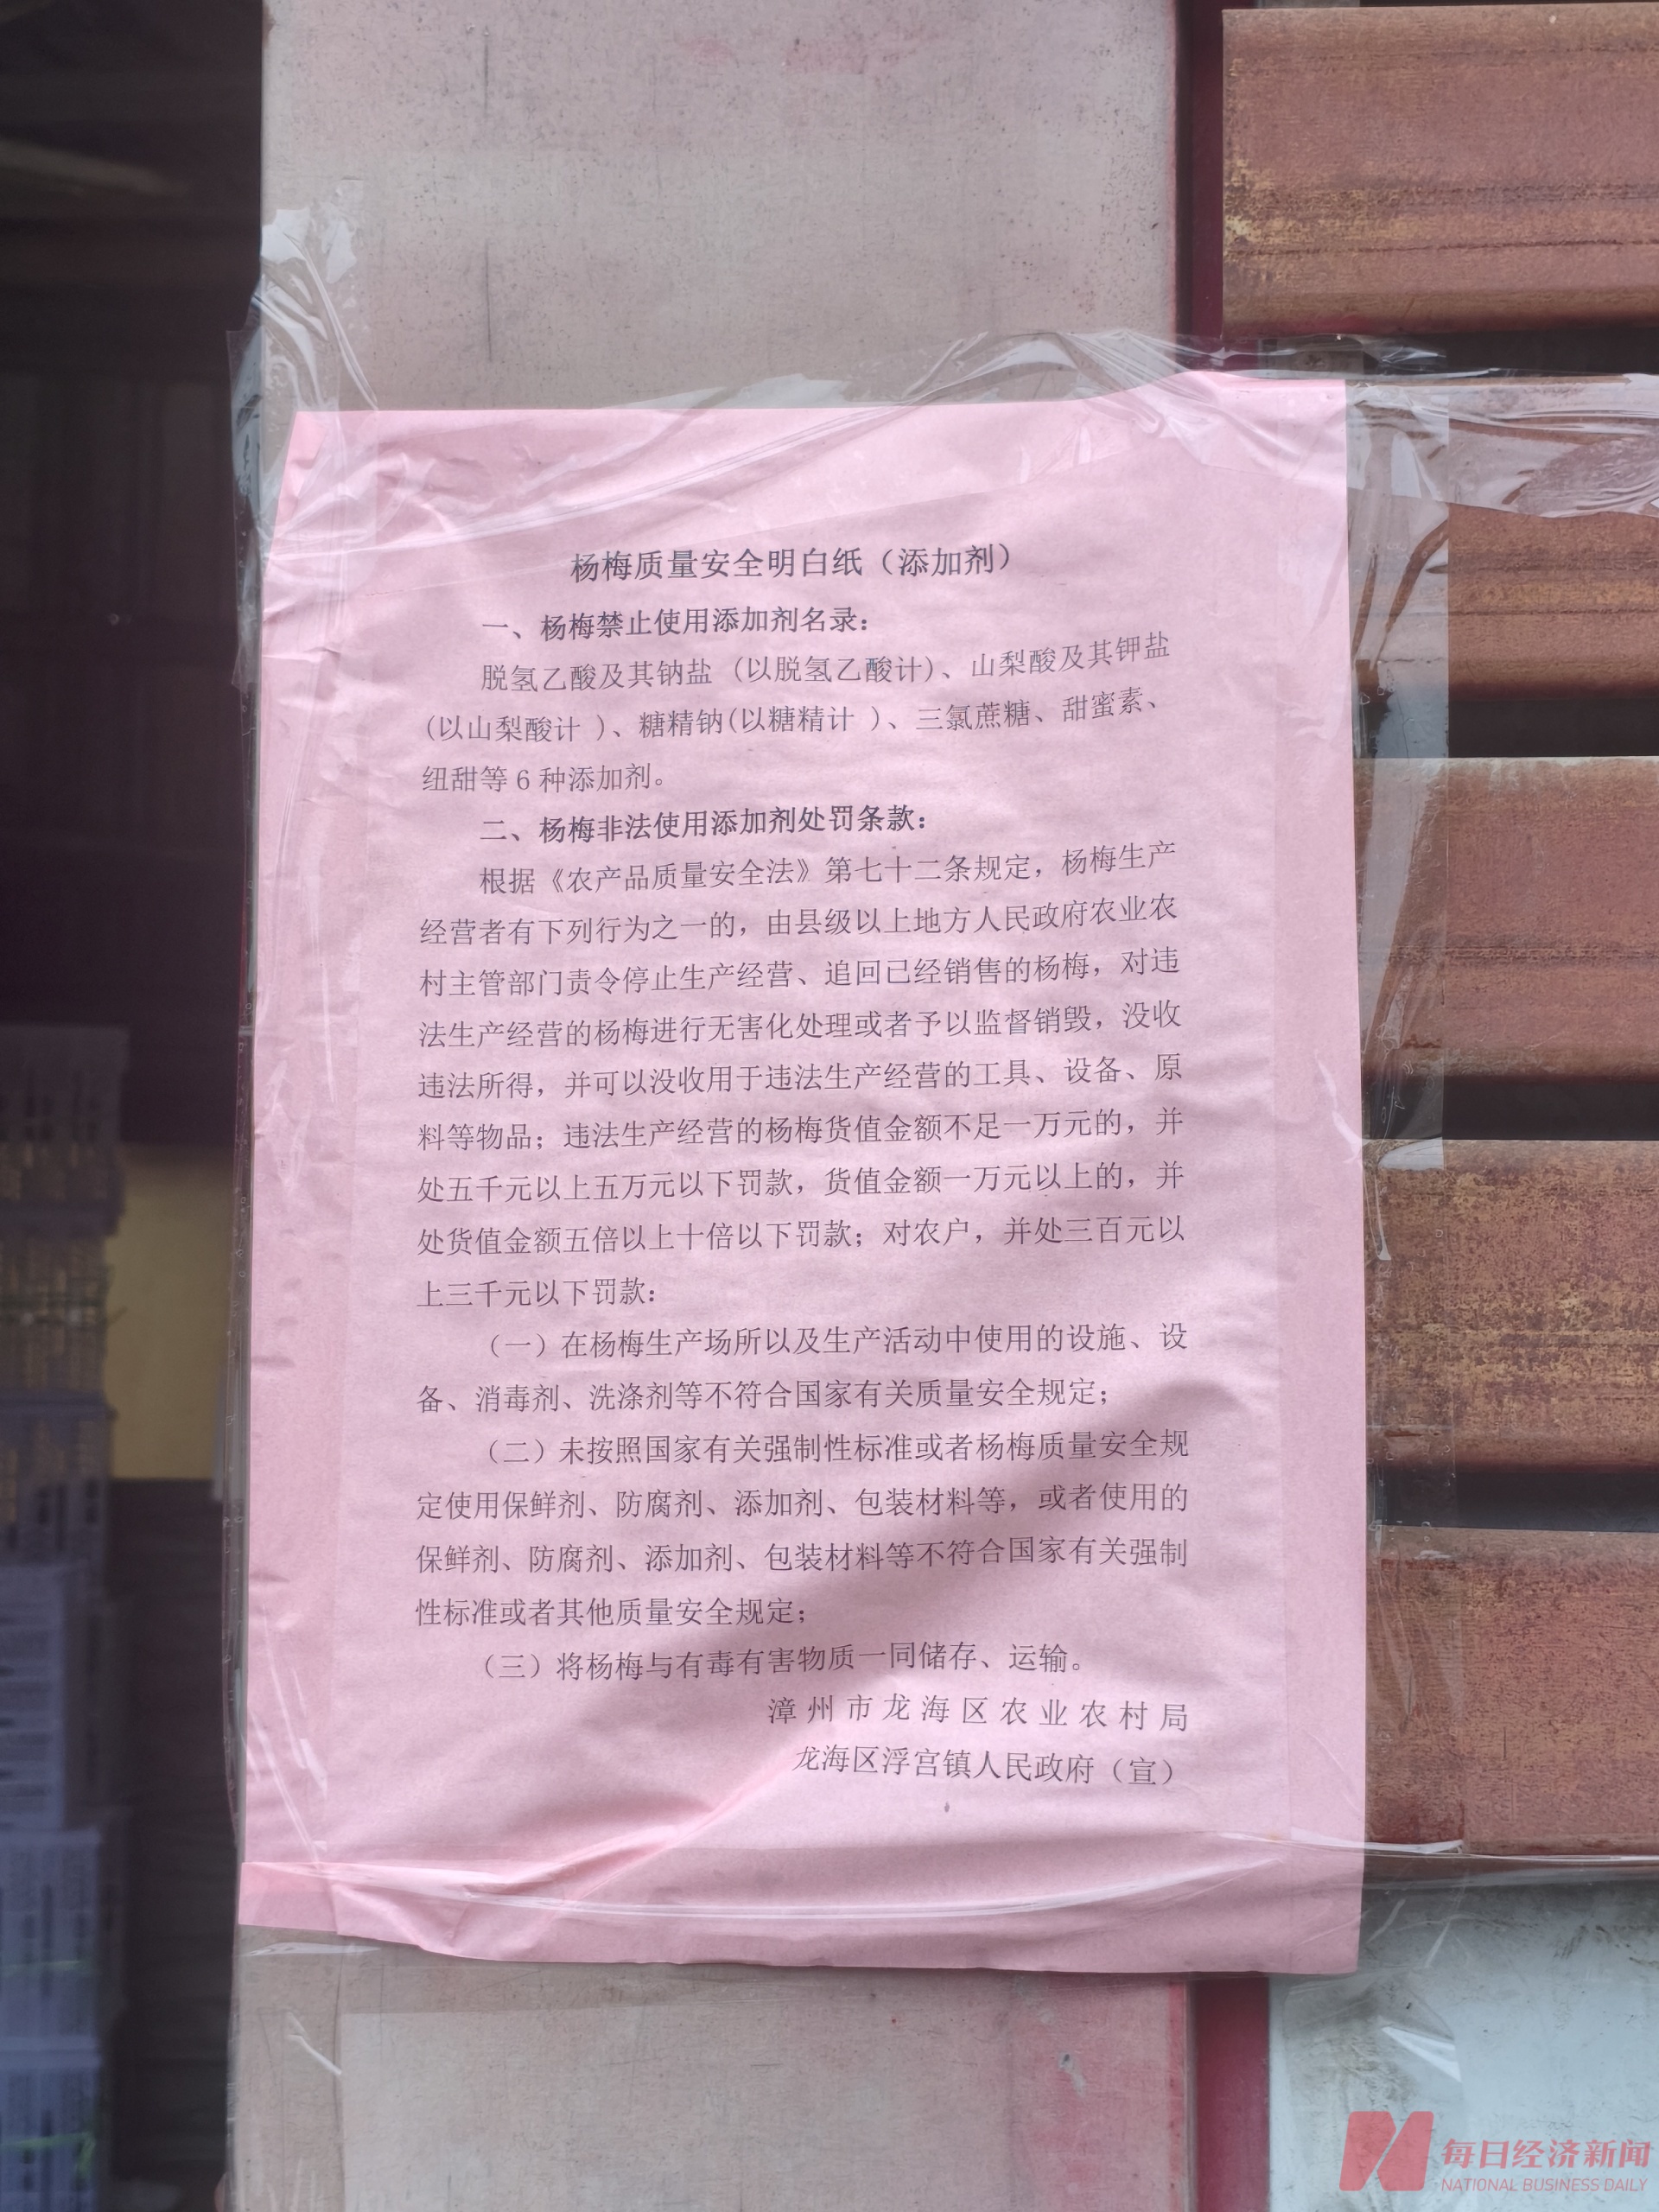 杨梅质量安全明白纸（添加剂）
一、杨梅禁止使用添加剂名录：
脱氢乙酸及其钠盐 (以脱氢乙酸计)、山梨酸及其钾盐
(以山梨酸计 )、糖精钠(以糖精计 )、三氯蔗糖、甜蜜素、
纽甜等 6 种添加剂。
二、杨梅非法使用添加剂处罚条款：
根据《农产品质量安全法》第七十二条规定，杨梅生产
经营者有下列行为之一的，由县级以上地方人民政府农业农
村主管部门责令停止生产经营、追回已经销售的杨梅，对违
法生产经营的杨梅进行无害化处理或者予以监督销毁，没收
违法所得，并可以没收用于违法生产经营的工具、设备、原
料等物品；违法生产经营的杨梅货值金额不足一万元的，并
处五千元以上五万元以下罚款，货值金额一万元以上的，并
处货值金额五倍以上十倍以下罚款；对农户，并处三百元以
上三千元以下罚款：
（一）在杨梅生产场所以及生产活动中使用的设施、设
备、消毒剂、洗涤剂等不符合国家有关质量安全规定；
（二）未按照国家有关强制性标准或者杨梅质量安全规
定使用保鲜剂、防腐剂、添加剂、包装材料等，或者使用的
保鲜剂、防腐剂、添加剂、包装材料等不符合国家有关强制
性标准或者其他质量安全规定；
（三）将杨梅与有毒有害物质一同储存、运输。
漳州市龙海区农业农村局
龙海区浮宫镇人民政府（宣）
每日经济新闻
NATIONAL BUSINESS DAILY